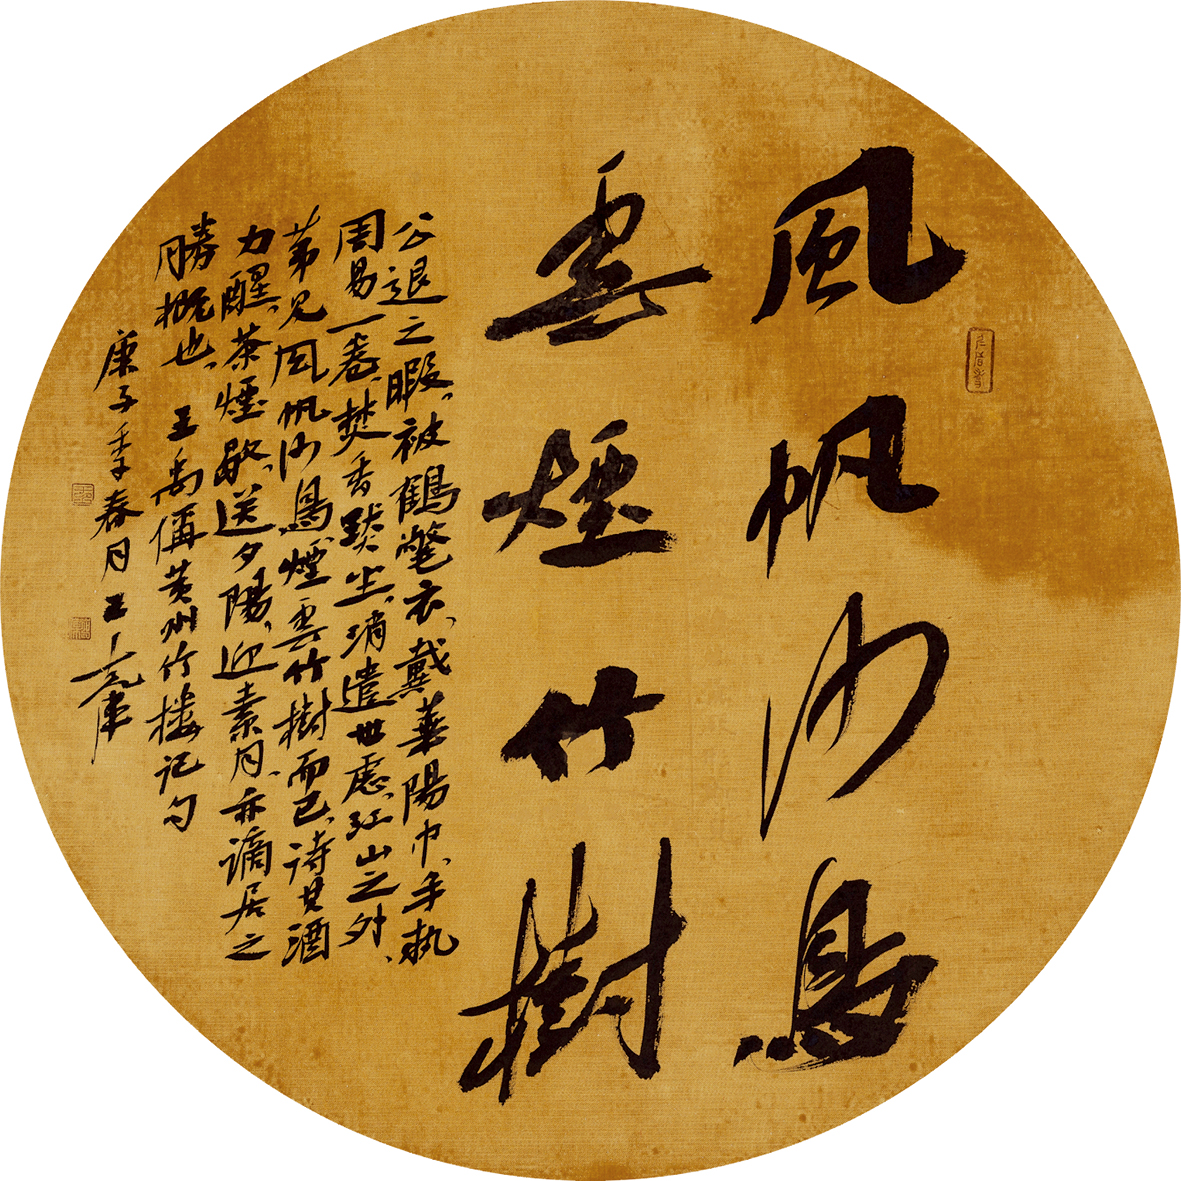 風帆沙鳥
雲煙竹樹
公退之暇、被鶴氅衣、戴華陽巾、手執
周易一卷、焚香默坐、消遣世慮、江山之外、
第見風帆沙鳥、煙雲竹樹而已、待其酒
力醒、茶煙歇、送夕陽、迎素月、亦謫居之
勝概也、王禹偁黃州竹樓記句
庚子季春月王